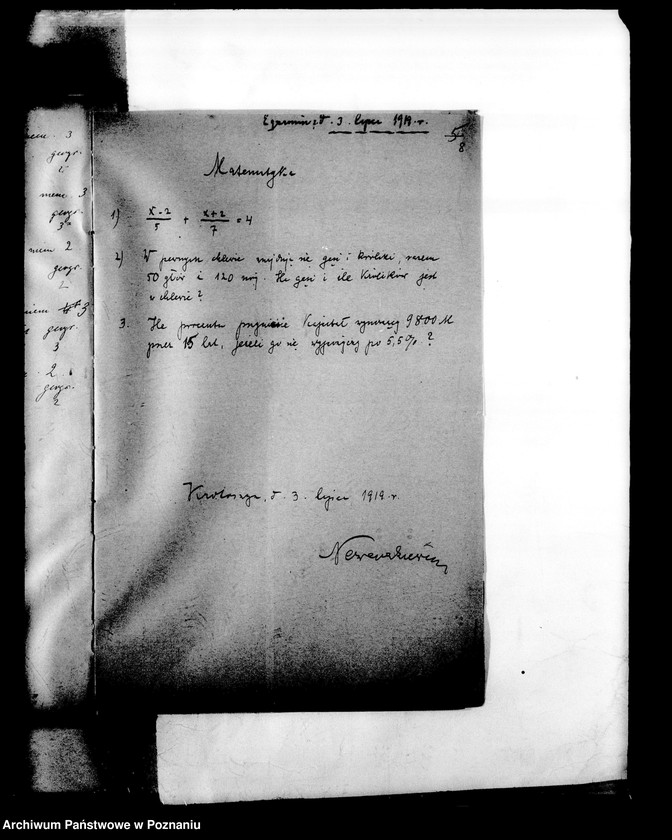 mem. 3
geogr.
mem. 3
geogr.
3
mem 2
geogr.
3
geogr.
3
2
geogr.
2
Egzamin z d. 3. lipca 1919. r.
5
8
Matematyka
1) x-2/5 + x+2/7 = 4
2) W pewnym chlewie znajdują się gęsi i króliki, razem
50 głów i 120 nóg. Ile gęsi i ile królików jest
w chlewie?
3. Ile procentu przyniesie kapitał wynoszący 9800 M
przez 15 lat, jeżeli go się wypożyczy po 5,5%?
Krotoszyn, d. 3. lipca 1919. r.
Archiwum Państwowe w Poznaniu